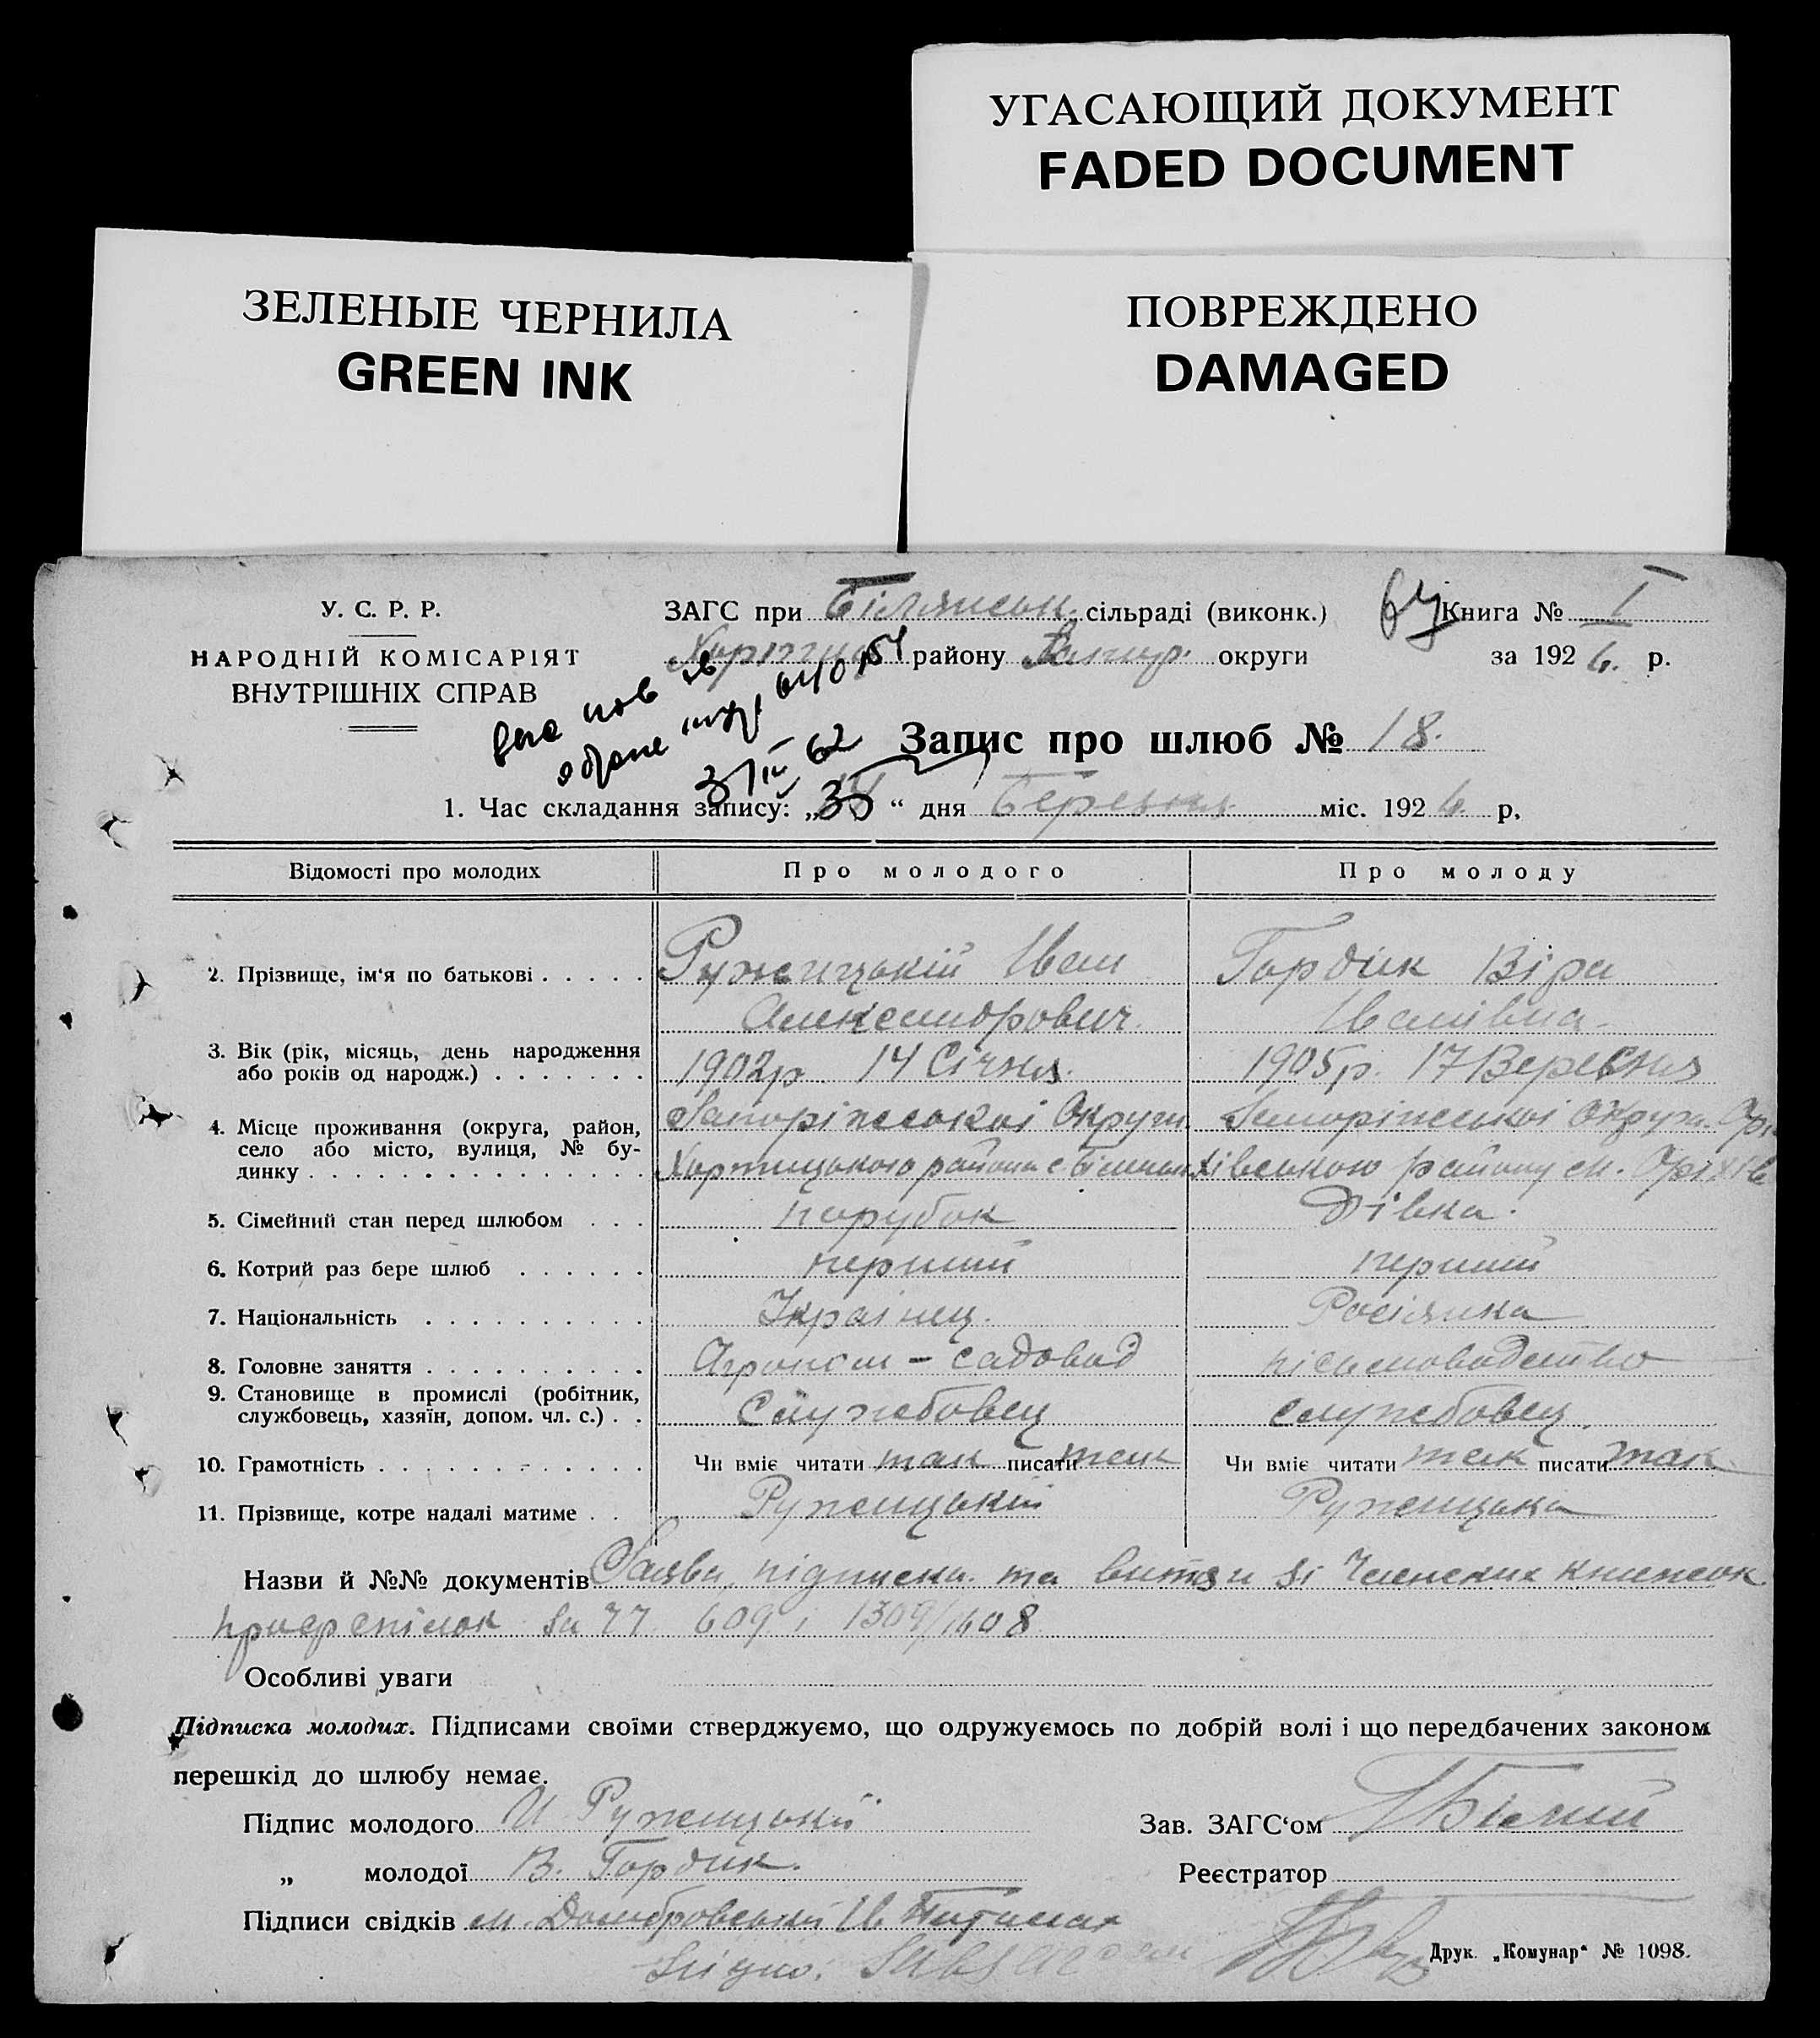 УГАСАЮЩИЙ ДОКУМЕНТ
FADED DOCUMENT
ЗЕЛЕНЫЕ ЧЕРНИЛА
GREEN INK
ПОВРЕЖДЕНО
DAMAGED
У. С. Р. Р.
НАРОДНІЙ КОМІСАРІЯТ
ВНУТРІШНІХ СПРАВ
ЗАГС при Білянськ. сільраді (виконк.)
Книга № I
району Запор. округи
за 1926. р.
3/IV 62
Запис про шлюб № 18.
1. Час складання запису: „ “ дня Березня міс. 1926. р.
Відомості про молодих
Про молодого
Про молоду
2. Прізвище, ім'я по батькові . . . . . Ружицькій Іван Гордик Віра
Александрович. Іванівна.
3. Вік (рік, місяць, день народження
або років од народж.) . . . . . . . 1902р 14 Січня. 1905р. 17 Вересня
4. Місце проживання (округа, район, Запоріжської Округи Запоріжської Округи. Орі
село або місто, вулиця, № бу-
динку . . . . . . . . . . . . . . . Хортицького района с. хівського району м. Оріхів
5. Сімейний стан перед шлюбом . . . парубок Дівка.
6. Котрий раз бере шлюб . . . . . . перший перший
7. Національність . . . . . . . . . . Українец. Росіянка
8. Головне заняття . . . . . . . . . . Агроном - садовод пісьмоводство
9. Становище в промислі (робітник,
службовець, хазяїн, допом. чл. с.) . . Службовец службовец.
10. Грамотність . . . . . . . . . . . . Чи вміє читати так писати так Чи вміє читати так писати так
11. Прізвище, котре надалі матиме . . Ружицькій Ружицька
Назви й №№ документів Заява, підписка та витяги зі Членских книжок
профспілок за 77 609 і 1309/1608
Особливі уваги
Підписка молодих. Підписами своїми стверджуємо, що одружуємось по добрій волі і що передбачених законом
перешкід до шлюбу немає.
Підпис молодого И Ружицькій
Зав. ЗАГС‘ом Білий
„ молодої В. Гордик.
Реєстратор
Підписи свідків М. Домбровський Ів.
Згідно:
Друк. „Комунар“ № 1098.